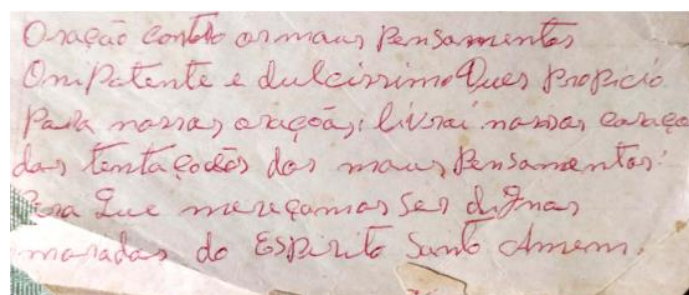 Oração contra os maus Pensamentos
OniPotente e dulcissimo Deus ProPicio
Para nossas orações, livrai nossas coraço
das tentações dos maus Pensamentos:
Para Que mereçamos Ser dignas
moradas do ESPirito Santo Amem.